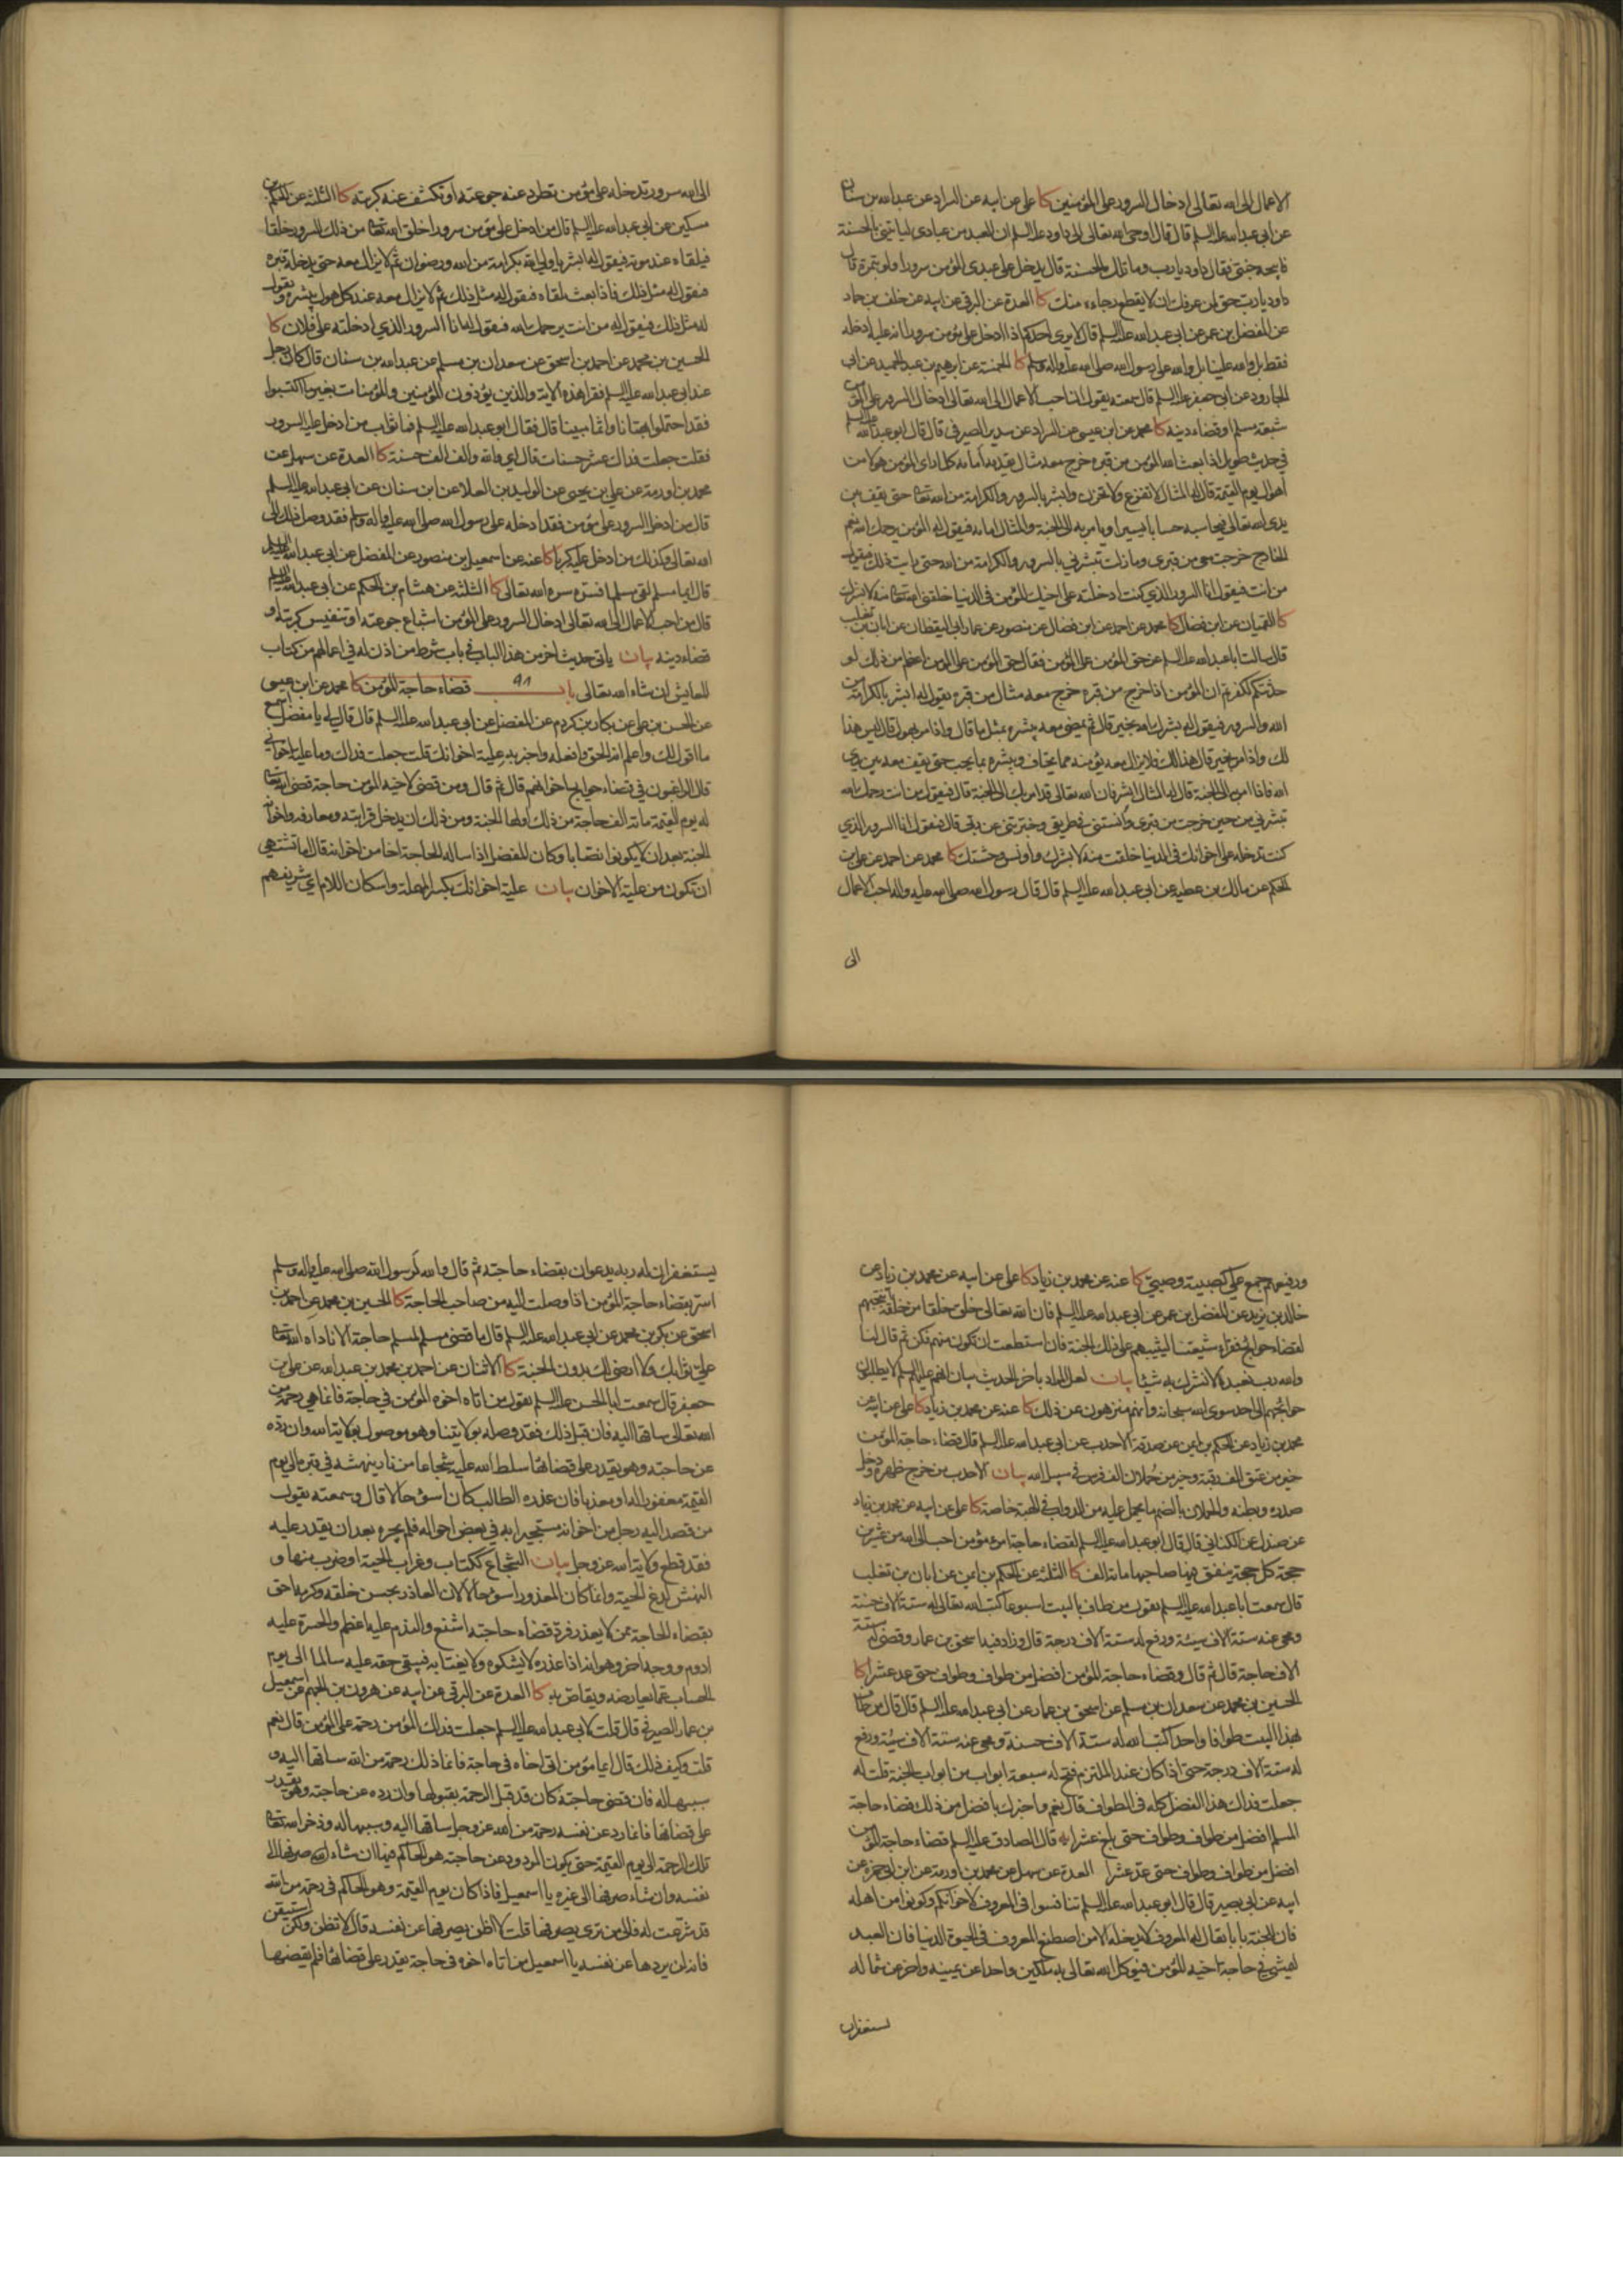 الاعمال الى الله تعالى ادخال السرور على المؤمنين كا على عن ابيه عن السراد عن عبدالله بن سنان
عن ابي عبدالله عليه السلم قال قال اوحى الله تعالى الى داود عليه السلم ان العبد من عبادى لياتيني بالحسنة
فابيحه جنتي فقال داود يا رب وما تلك الحسنة قال يدخل على عبدى المؤمن سرورا ولو بتمرة قال
داود يا رب حق لمن عرفك ان لا يقطع رجاءه منك كا العدة عن البرقي عن ابيه عن خلف بن حماد
عن المفضل بن عمر عن ابي عبدالله عليه السلم قال لا يرى احدكم اذا ادخل على مؤمن سرورا انه عليه ادخله
فقط بل والله علينا بل والله على رسول الله صلى الله عليه واله وسلم كا الخمسة عن ابرهيم بن عبد الحميد عن ابي
الجارود عن ابي جعفر عليه السلم قال سمعته يقول ان احب الاعمال الى الله تعالى ادخال السرور على المؤمن
شبعة مسلم او قضاء دينه كا محمد عن ابن عيسى عن السراد عن سدير الصيرفي قال قال ابو عبدالله عليه السلم
في حديث طويل اذا بعث الله المؤمن من قبره خرج معه مثال يقدمه امامه كلما راى المؤمن هولا من
اهوال يوم القيمة قال له المثال لا تفزع ولا تحزن وابشر بالسرور والكرامة من الله تعالى حتى يقف بين
يدى الله تعالى فيحاسبه حسابا يسيرا ويامر به الى الجنة والمثال امامه فيقول له المؤمن رحمك الله نعم
الخارج خرجت معي من قبرى وما زلت تبشرني بالسرور والكرامة من الله حتى رايت ذلك فيقول
من انت فيقول انا السرور الذي كنت ادخلته على اخيك المؤمن في الدنيا خلقني الله تعالى منه لابشرك
كا القميان عن ابن فضال كا محمد عن احمد عن ابن فضال عن منصور عن عمار ابي اليقظان عن ابان بن تغلب
قال سالت ابا عبدالله عليه السلم عن حق المؤمن على المؤمن فقال حق المؤمن على المؤمن اعظم من ذلك لو
حدثتكم لكفرتم ان المؤمن اذا خرج من قبره خرج معه مثال من قبره يقول له ابشر بالكرامة من
الله والسرور فيقول له بشرك الله بخير قال ثم يمضي معه يبشره بمثل ما قال واذا مر بهول قال ليس هذا
لك واذا مر بخير قال هذا لك فلا يزال معه يؤمنه مما يخاف ويبشره بما يحب حتى يقف معه بين يدى
الله فاذا امر به الى الجنة قال له المثال ابشر فان الله تعالى قد امر بك الى الجنة قال فيقول من انت رحمك الله
تبشرني من حين خرجت من قبرى وآنستني في طريقي وخبرتني عن ربي قال فيقول انا السرور الذي
كنت تدخله على اخوانك في الدنيا خلقت منه لابشرك واونس وحشتك كا محمد عن احمد عن على بن
الحكم عن مالك بن عطيه عن ابي عبدالله عليه السلم قال قال رسول الله صلى الله عليه واله احب الاعمال
الى
الى الله سرور تدخله على مؤمن تطرد عنه جوعته او تكشف عنه كربته كا الثلثة عن الحكم بن
مسكين عن ابي عبدالله عليه السلم قال من ادخل على مؤمن سرورا خلق الله تعالى من ذلك السرور خلقا
فيلقاه عند موته فيقول له ابشر يا ولي الله بكرامة من الله ورضوان ثم لا يزال معه حتى يدخله قبره
فيقول له مثل ذلك فاذا بعث يلقاه فيقول له مثل ذلك ثم لا يزال معه عند كل هول يبشره ويقول
له مثل ذلك فيقول له من انت يرحمك الله فيقول له انا السرور الذي ادخلته على فلان كا
الحسين بن محمد عن احمد بن اسحق عن سعدان بن مسلم عن عبدالله بن سنان قال كان رجل
عند ابي عبدالله عليه السلم فقرا هذه الاية والذين يؤذون المؤمنين والمؤمنات بغير ما اكتسبوا
فقد احتملوا بهتانا واثما مبينا قال فقال ابو عبدالله عليه السلم فما ثواب من ادخل عليه السرور
فقلت جعلت فداك عشر حسنات قال اي والله والف الف حسنة كا العدة عن سهل عن
محمد بن اورمة عن على بن يحيى عن الوليد بن العلا عن ابن سنان عن ابي عبدالله عليه السلم
قال من ادخل السرور على مؤمن فقد ادخله على رسول الله صلى الله عليه واله وسلم فقد وصل ذلك الى
الله تعالى وكذلك من ادخل عليه كربا كا عنه عن اسمعيل بن منصور عن المفضل عن ابي عبدالله عليه السلم
قال ايما مسلم لقى مسلما فسره سره الله تعالى كا الثلثة عن هشام بن الحكم عن ابي عبدالله عليه السلم
قال من احب الاعمال الى الله تعالى ادخال السرور على المؤمن اشباع جوعته او تنفيس كربته او
قضاء دينه بيان ياتي حديث اخر من هذا الباب في باب شرط من اذن له في اعمالهم من كتاب
المعايش ان شاء الله تعالى باب ٩١ قضاء حاجة المؤمن كا محمد عن ابن عيسى
عن الحسن بن على عن بكار بن كردم عن المفضل عن ابي عبدالله عليه السلم قال قال لي يا مفضل اسمع
ما اقول لك واعلم انه الحق وافعله واخبر به علية اخوانك قلت جعلت فداك وما علية اخواني
قال الراغبون في قضاء حوايج اخوانهم قال ثم قال ومن قضى لاخيه المؤمن حاجة قضى الله تعالى
له يوم القيمة مائة الف حاجة من ذلك اولها الجنة ومن ذلك ان يدخل قرابته ومعارفه واخوانه
الجنة بعد ان لا يكونوا نصابا وكان المفضل اذا ساله الحاجة اخا من اخوانه قال له اما تشتهي
ان تكون من علية الاخوان بيان علية اخوانك بكسر المهملة واسكان اللام اي شريفهم
ورفيعهم جمع علي كصبية وصبي كا عنه عن محمد بن زياد كا على عن ابيه عن محمد بن زياد عن
خالد بن يزيد عن المفضل بن عمر عن ابي عبدالله عليه السلم قال ان الله تعالى خلق خلقا من خلقه انتجبهم
لقضاء حوائج فقراء شيعتنا ليثيبهم على ذلك الجنة فان استطعت ان تكون منهم فكن ثم قال لنا
والله رب نعبده لا نشرك به شيئا بيان لعل المراد باخر الحديث بيان انهم عليهم السلم لا يطلبون
حوائجهم الى احد سوى الله سبحانه وانهم منزهون عن ذلك كا عنه عن محمد بن زياد كا على عن ابيه عن
محمد بن زياد عن الحكم بن ايمن عن صدقة الاحدب عن ابي عبدالله عليه السلم قال قضاء حاجة المؤمن
خير من عتق الف رقبة وخير من حملان الف فرس في سبيل الله بيان الاحدب من خرج ظهره ودخل
صدره وبطنه والحملان بالضم ما يحمل عليه من الدواب في الهبة خاصة كا على عن ابيه عن محمد بن زياد
عن صندل عن الكناني قال قال ابو عبدالله عليه السلم لقضاء حاجة امرء مؤمن احب الى الله من عشرين
حجة كل حجة ينفق فيها صاحبها مائة الف كا الثلثة عن الحكم بن ايمن عن ابان بن تغلب
قال سمعت ابا عبدالله عليه السلم يقول من طاف بالبيت اسبوعا كتب الله تعالى له ستة الاف حسنة
ومحى عنه ستة الاف سيئة ورفع له ستة الاف درجة قال وزاد فيه اسحق بن عمار وقضى له ستة
الاف حاجة قال ثم قال وقضاء حاجة المؤمن افضل من طواف وطواف حتى عد عشرا كا
الحسين بن محمد عن سعدان بن مسلم عن اسحق بن عمار عن ابي عبدالله عليه السلم قال قال من طاف
بهذا البيت طوافا واحدا كتب الله له ستة الاف حسنة ومحى عنه ستة الاف سيئة ورفع
له ستة الاف درجة حتى اذا كان عند الملتزم فتح له سبعة ابواب من ابواب الجنة قلت له
جعلت فداك هذا الفضل كله في الطواف قال نعم واخبرك بافضل من ذلك قضاء حاجة
المسلم افضل من طواف وطواف حتى بلغ عشرا يه قال الصادق عليه السلم قضاء حاجة المؤمن
افضل من طواف وطواف حتى عد عشرا العدة عن سهل عن محمد بن اورمة عن ابن ابي حمزة عن
ابيه عن ابي بصير قال قال ابو عبدالله عليه السلم تنافسوا في المعروف لاخوانكم وكونوا من اهله
فان للجنة بابا يقال له المعروف لا يدخله الا من اصطنع المعروف في الحيوة الدنيا فان العبد
ليمشي في حاجة اخيه المؤمن فيوكل الله تعالى به ملكين واحدا عن يمينه واخر عن شماله
يستغفران
يستغفران له ربه يدعوان بقضاء حاجته ثم قال والله لرسول الله صلى الله عليه واله وسلم
اسر بقضاء حاجة المؤمن اذا وصلت اليه من صاحب الحاجة كا الحسين بن محمد عن احمد بن
اسحق عن بكر بن محمد عن ابي عبدالله عليه السلم قال ما قضى مسلم لمسلم حاجة الا ناداه الله تعالى
علي ثوابك ولا ارضى لك بدون الجنة كا الاثنان عن احمد بن محمد بن عبدالله عن على بن
جعفر قال سمعت ابا الحسن عليه السلم يقول من اتاه اخوه المؤمن في حاجة فانما هي رحمة من
الله تعالى ساقها اليه فان قبل ذلك فقد وصله بولايتنا وهو موصول بولاية الله وان رده
عن حاجته وهو يقدر على قضائها سلط الله عليه شجاعا من نار ينهشه في قبره الى يوم
القيمة مغفور له او معذبا فان عذره الطالب كان اسوء حالا قال وسمعته يقول
من قصد اليه رجل من اخوانه مستجيرا به في بعض احواله فلم يجره بعد ان يقدر عليه
فقد قطع ولاية الله عز وجل بيان الشجاع ككتاب وغراب الحية او ضرب منها و
النهش لدغ الحية وانما كان المعذور اسوء حالا لان العاذر بحسن خلقه وكرمه احق
بقضاء الحاجة ممن لا يعذر فرد قضاء حاجته اشنع والندم عليه اعظم والحسرة عليه
ادوم ووجه اخر وهو انه اذا عذره لا يشكوه ولا يغتابه فيبقى حقه عليه سالما الى يوم
الحساب بما يعارضه ويقاص به كا العدة عن البرقي عن ابيه عن هرون بن الجهم عن اسمعيل
بن عمار الصيرفي قال قلت لابي عبدالله عليه السلم جعلت فداك المؤمن رحمة على المؤمن قال نعم
قلت وكيف ذلك قال ايما مؤمن اتى اخاه في حاجة فانما ذلك رحمة من الله ساقها اليه و
سببها له فان قضى حاجته كان قد قبل الرحمة بقبولها وان رده عن حاجته وهو يقدر
على قضائها فانما رد عن نفسه رحمة من الله عز وجل ساقها اليه وسببها له وذخر الله تعالى
تلك الرحمة الى يوم القيمة حتى يكون المردود عن حاجته هو الحاكم فيها ان شاء صرفها الى
نفسه وان شاء صرفها الى غيره يا اسمعيل فاذا كان يوم القيمة وهو الحاكم في رحمة من الله
قد شرعت له فالى من ترى يصرفها قلت لا اظن يصرفها عن نفسه قال لا تظن ولكن استيقن
فانه لن يردها عن نفسه يا اسمعيل من اتاه اخوه في حاجة يقدر على قضائها فلم يقضها